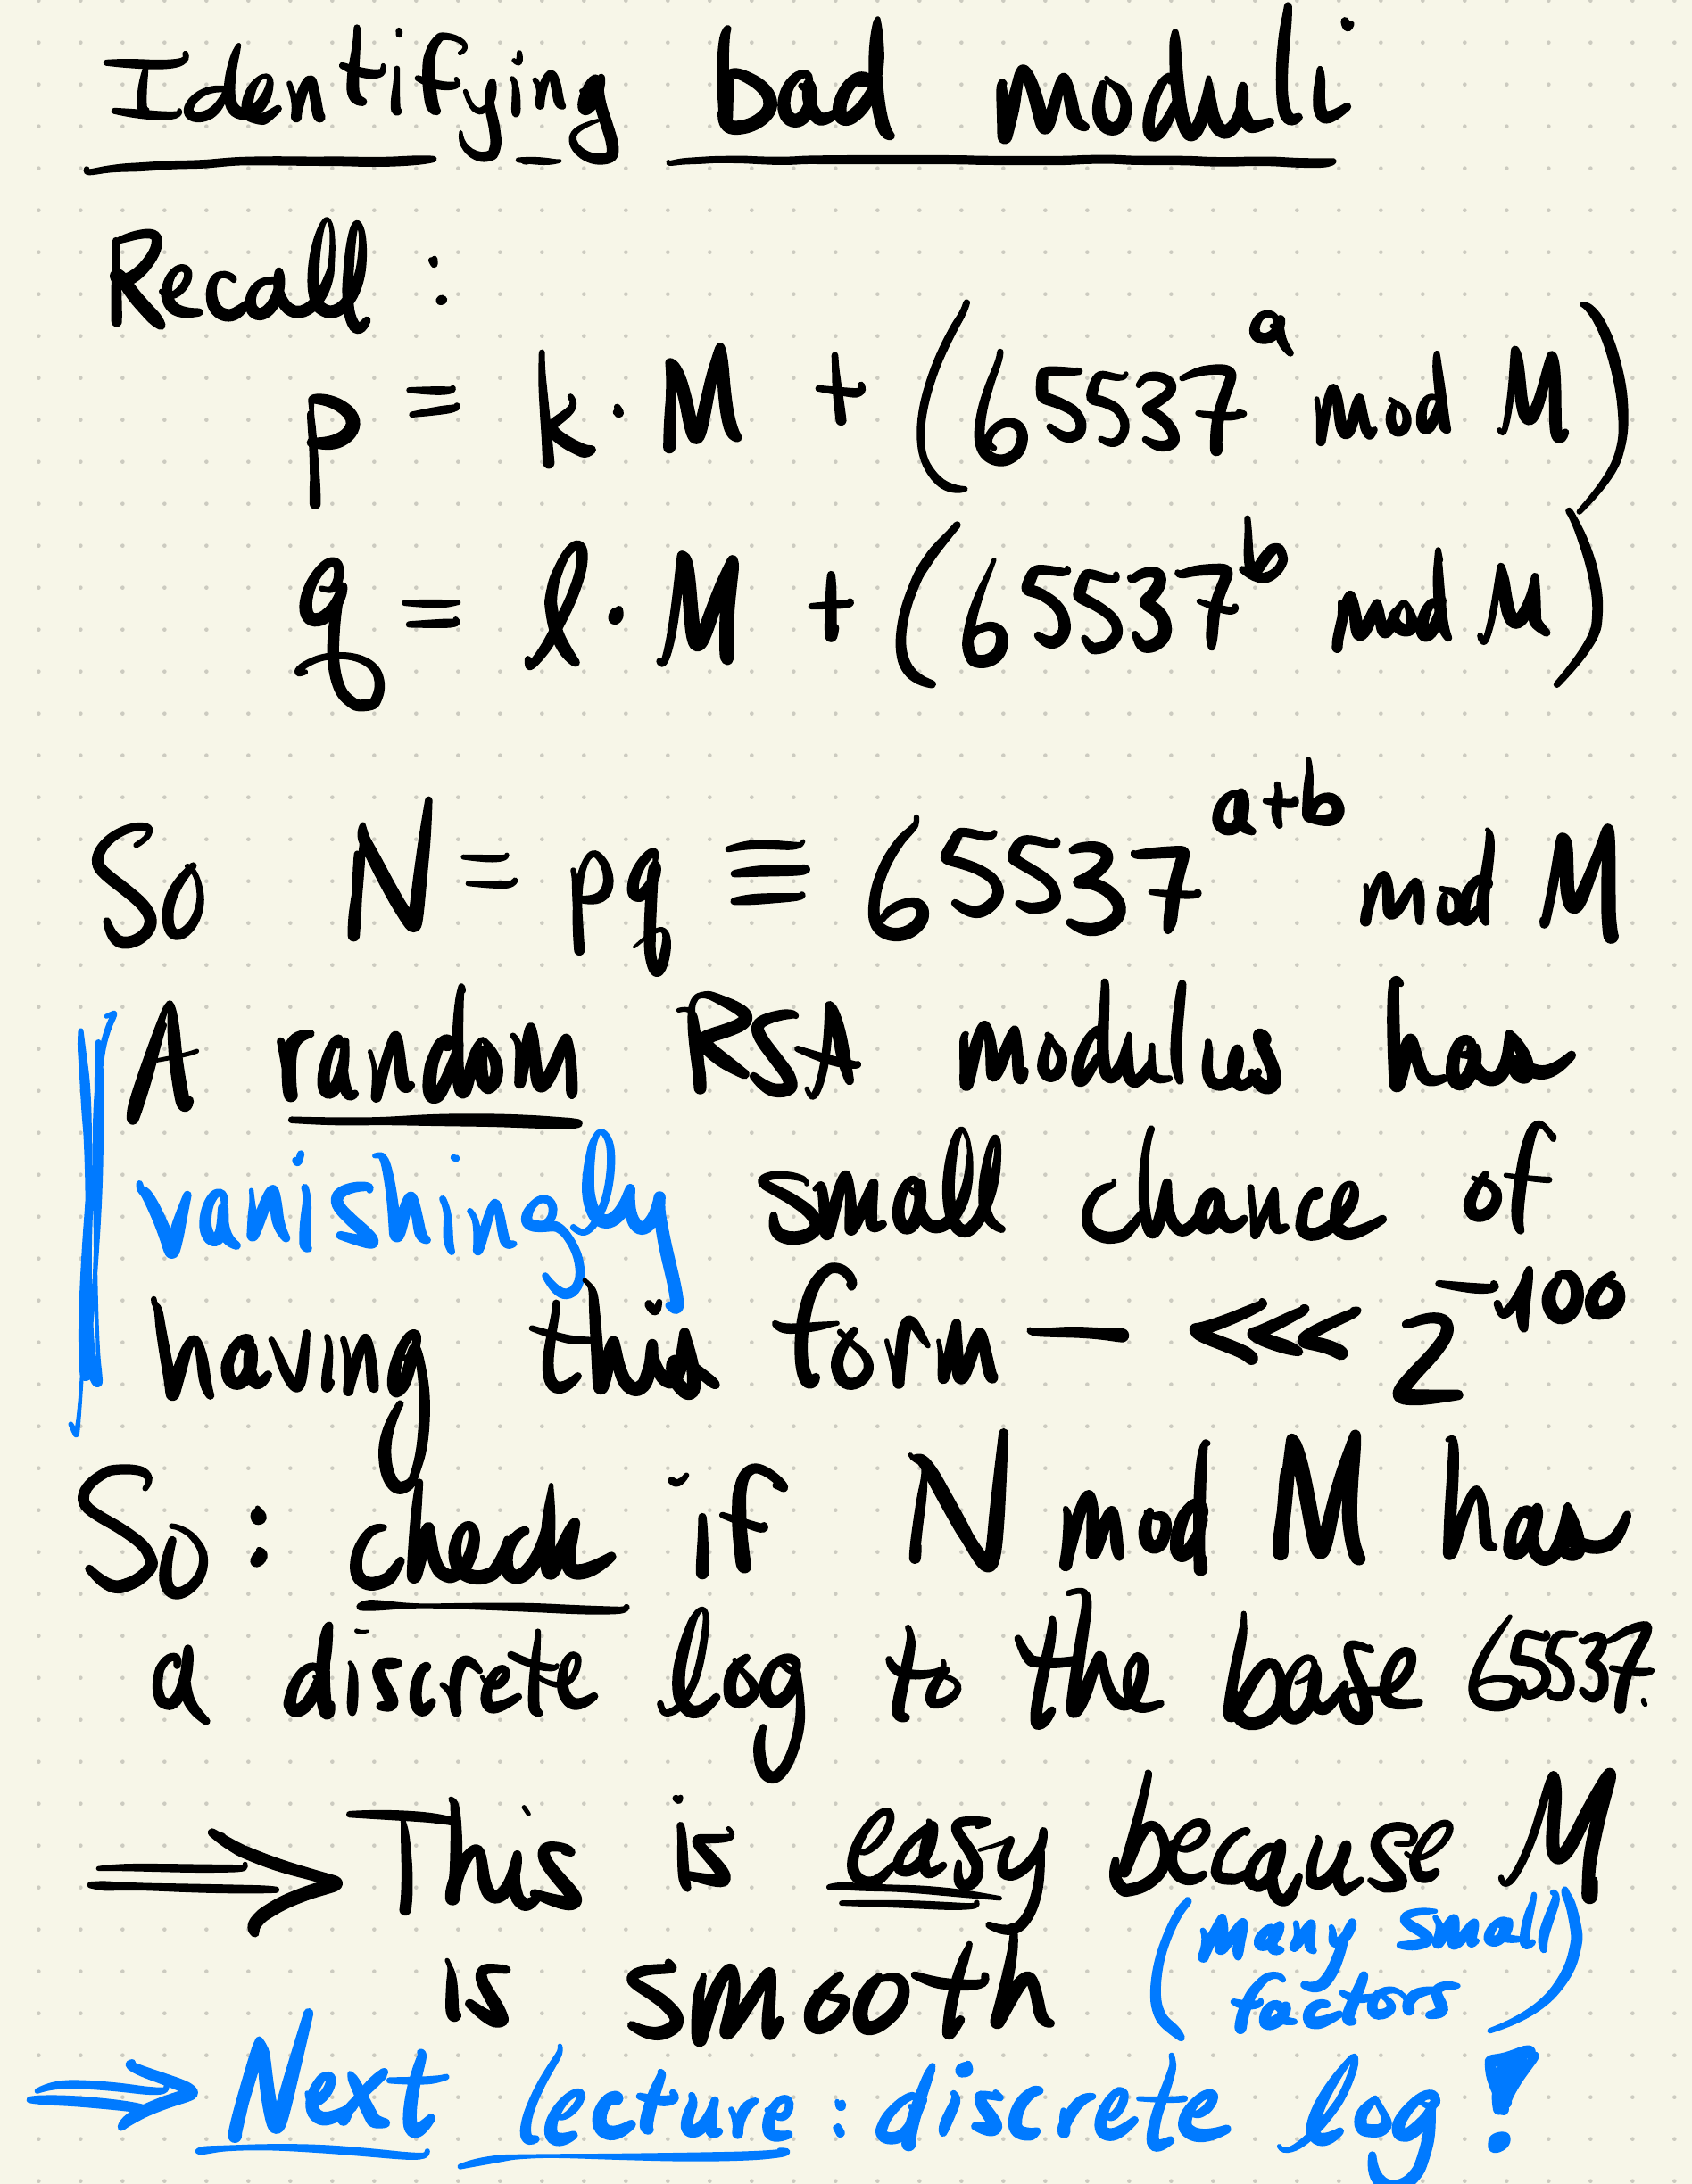 Identifying bad moduli
Recall :
p = k · M + (65537^a mod M)
q = l · M + (65537^b mod M)
So N = pq ≡ 65537^(a+b) mod M
A random RSA modulus has
vanishingly small chance of
having this form — <<< 2^-100
So : check if N mod M has
a discrete log to the base 65537.
⟹ This is easy because M
is smooth (many small
factors)
⟹ Next lecture : discrete log !